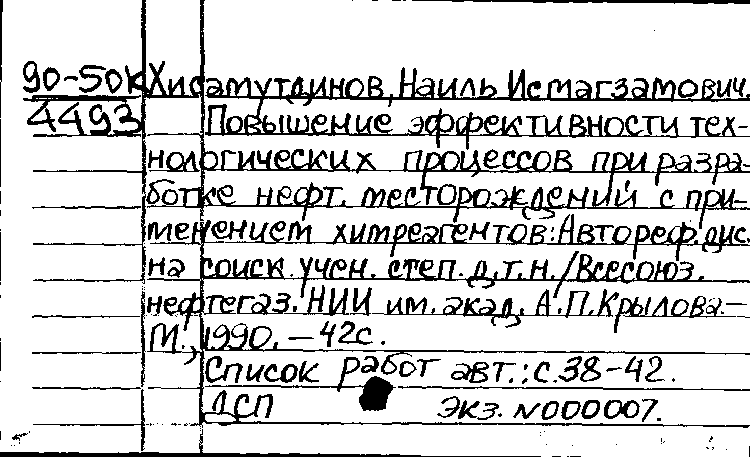 90-50к Хисамутдинов, Наиль Исмагзамович.
4493 Повышение эффективности тех-
нологических процессов при разра-
ботке нефт. месторождений с при-
менением химреагентов: Автореф. дис.
на соиск. учен. степ. д.т.н. / Всесоюз.
нефтегаз. НИИ им. акад. А.П. Крылова. -
М., 1990. - 42с.
Список работ авт.: с. 38-42.
ДСП Экз. N000007.